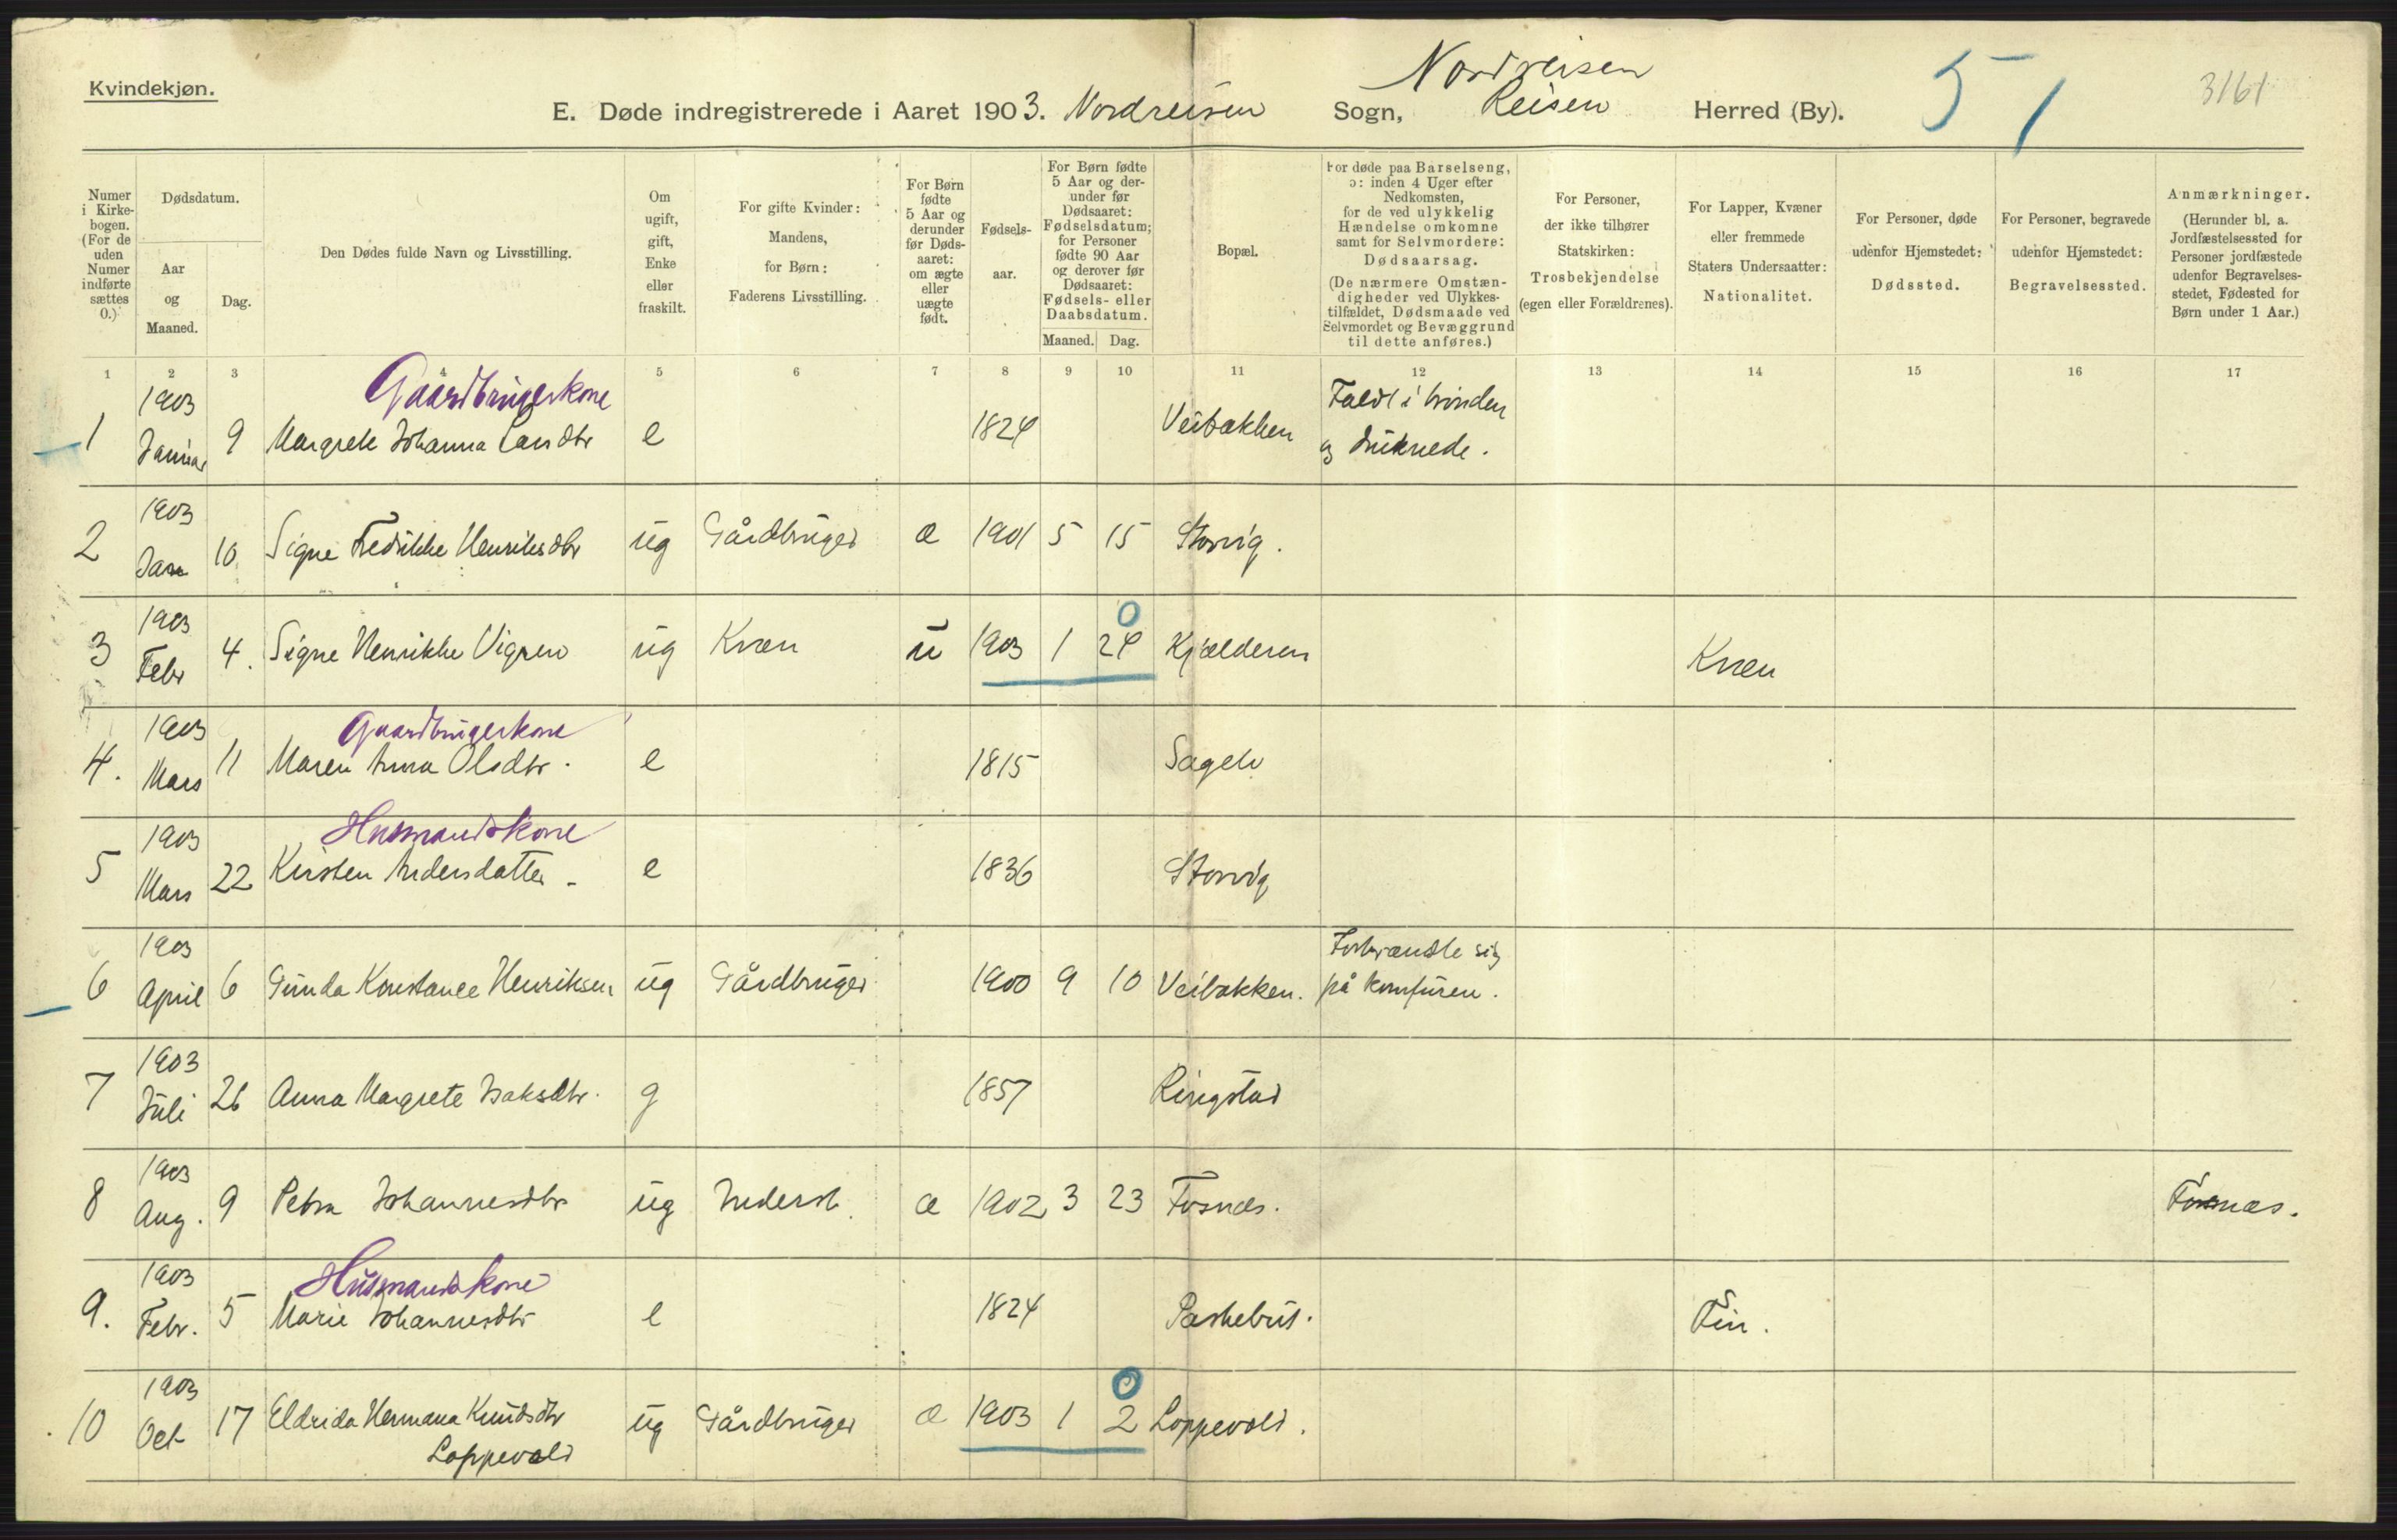 Kvindekjøn.
E. Døde indregistrerede i Aaret 1903. Nordreisen Sogn, Nordreisen Reisen Herred (By).
51
3161
Numer i Kirkebogen. (For de uden Numer indførte sættes 0.)
Dødsdatum.
Aar og Maaned.
Dag.
Den Dødes fulde Navn og Livsstilling.
Om ugift, gift, Enke eller fraskilt.
For gifte Kvinder: Mandens, for Børn: Faderens Livsstilling.
For Børn fødte 5 Aar og derunder før Dødsaaret: om ægte eller uægte født.
Fødselsaar.
For Børn fødte 5 Aar og derunder før Dødsaaret: Fødselsdatum; for Personer fødte 90 Aar og derover før Dødsaaret: Fødsels- eller Daabsdatum.
Maaned. Dag.
Bopæl.
For døde paa Barselseng, ɔ: inden 4 Uger efter Nedkomsten, for de ved ulykkelig Hændelse omkomne samt for Selvmordere: Dødsaarsag.
(De nærmere Omstændigheder ved Ulykkestilfældet, Dødsmaade ved Selvmordet og Bevæggrund til dette anføres.)
For Personer, der ikke tilhører Statskirken: Trosbekjendelse (egen eller Forældrenes).
For Lapper, Kvæner eller fremmede Staters Undersaatter: Nationalitet.
For Personer, døde udenfor Hjemstedet: Dødssted.
For Personer, begravede udenfor Hjemstedet: Begravelsessted.
Anmærkninger. (Herunder bl. a. Jordfæstelsessted for Personer jordfæstede udenfor Begravelsesstedet, Fødested for Børn under 1 Aar.)
1 2 3 4 5 6 7 8 9 10 11 12 13 14 15 16 17
1903 Gaardbrugerkone Faldt i brønden
1 Januar 9 Margrete Johanna Larsdtr e 1824 Veibakken og druknede.
1903
2 Jan 10 Signe Fredrikke Henriksdtr ug Gårdbruger æ 1901 5 15 Storvig.
1903 0
3 Febr 4. Signe Henrikke Vigren ug Kvæn u 1903 1 24 Kjælderen Kvæn
1903 Gaardbrugerkone
4. Mars 11 Maren Anna Olsdtr. e 1815 Sagelv
1903 Husmandskone
5 Mars 22 Kirsten Andersdatter - e 1836 Storvig
1903 Forbrændte sig
6 April 6 Gunda Konstance Henriksen ug Gårdbruger 1900 9 10 Veibakken. på komfuren.
1903
7 Juli 26 Anna Margrete Isaksdtr. g 1857 Ringstad
1903
8 Aug. 9 Petra Johannesdtr ug Inderst. æ 1902 3 23 Fosnæs. Fosnæs.
1903 Husmandskone
9. Febr. 5 Marie Johannesdtr e 1824 Fin.
1903 0
10 Oct 17 Eldrida Hermana Knudsdtr ug Gårdbruger æ 1903 1 2 Loppevold.
Loppevold